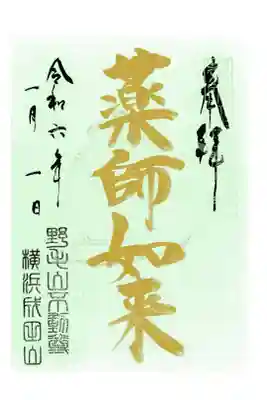 奉拝
薬師如来
令和六年
一月 一日
野毛山不動尊
横浜成田山